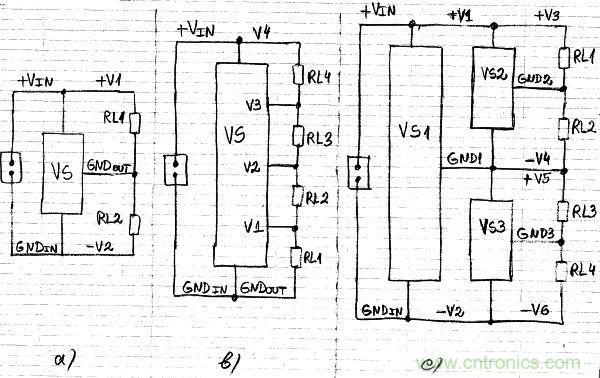 +VIN +V1
RL1
VS
GNDOUT
RL2
GNDIN -V2
a)
+VIN V4
RL4
V3
VS
RL3
V2
RL2
V1
RL1
GNDIN GNDOUT
в)
+VIN +V1 +V3
RL1
VS2
GND2
RL2
VS1
GND1 -V4
+V5
RL3
VS3
GND3
RL4
GNDIN -V2 -V6
c)
www.cntronics.com